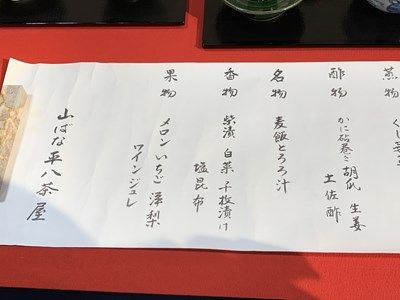 蒸物
酢物
かに砧巻き 胡瓜 生姜
土佐酢
名物
麦飯とろろ汁
香物
柴漬 白菜 千枚漬け
塩昆布
果物
メロン いちご 洋梨
ワインジュレ
山ばな平八茶屋